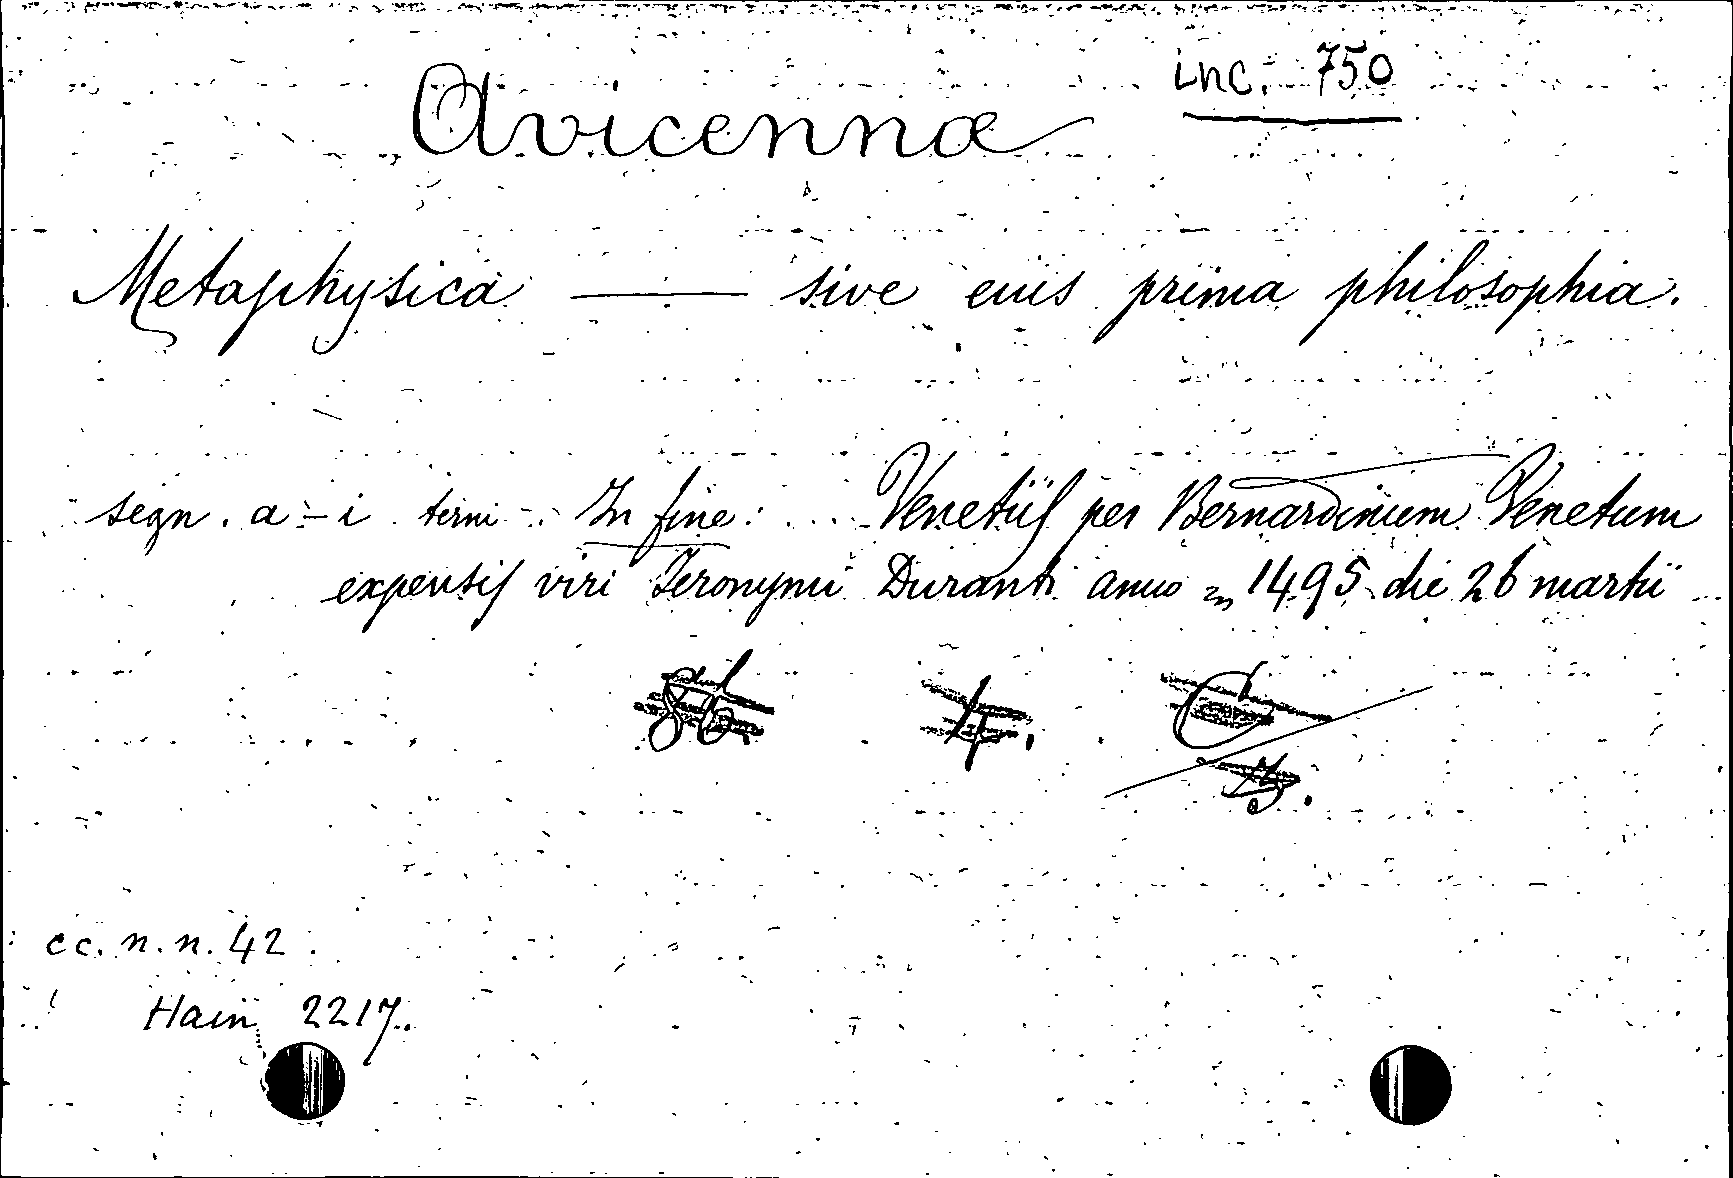 inc. 750
Avicennæ
Metaphysica —— sive eius prima philosophia.
segn. a - i terni. In fine: ... Venetiis per Bernardinum Venetum
expensis viri Jeronymi Duranti anno 1495 die 26 martii
cc. n. n. 42
Hain 2217.